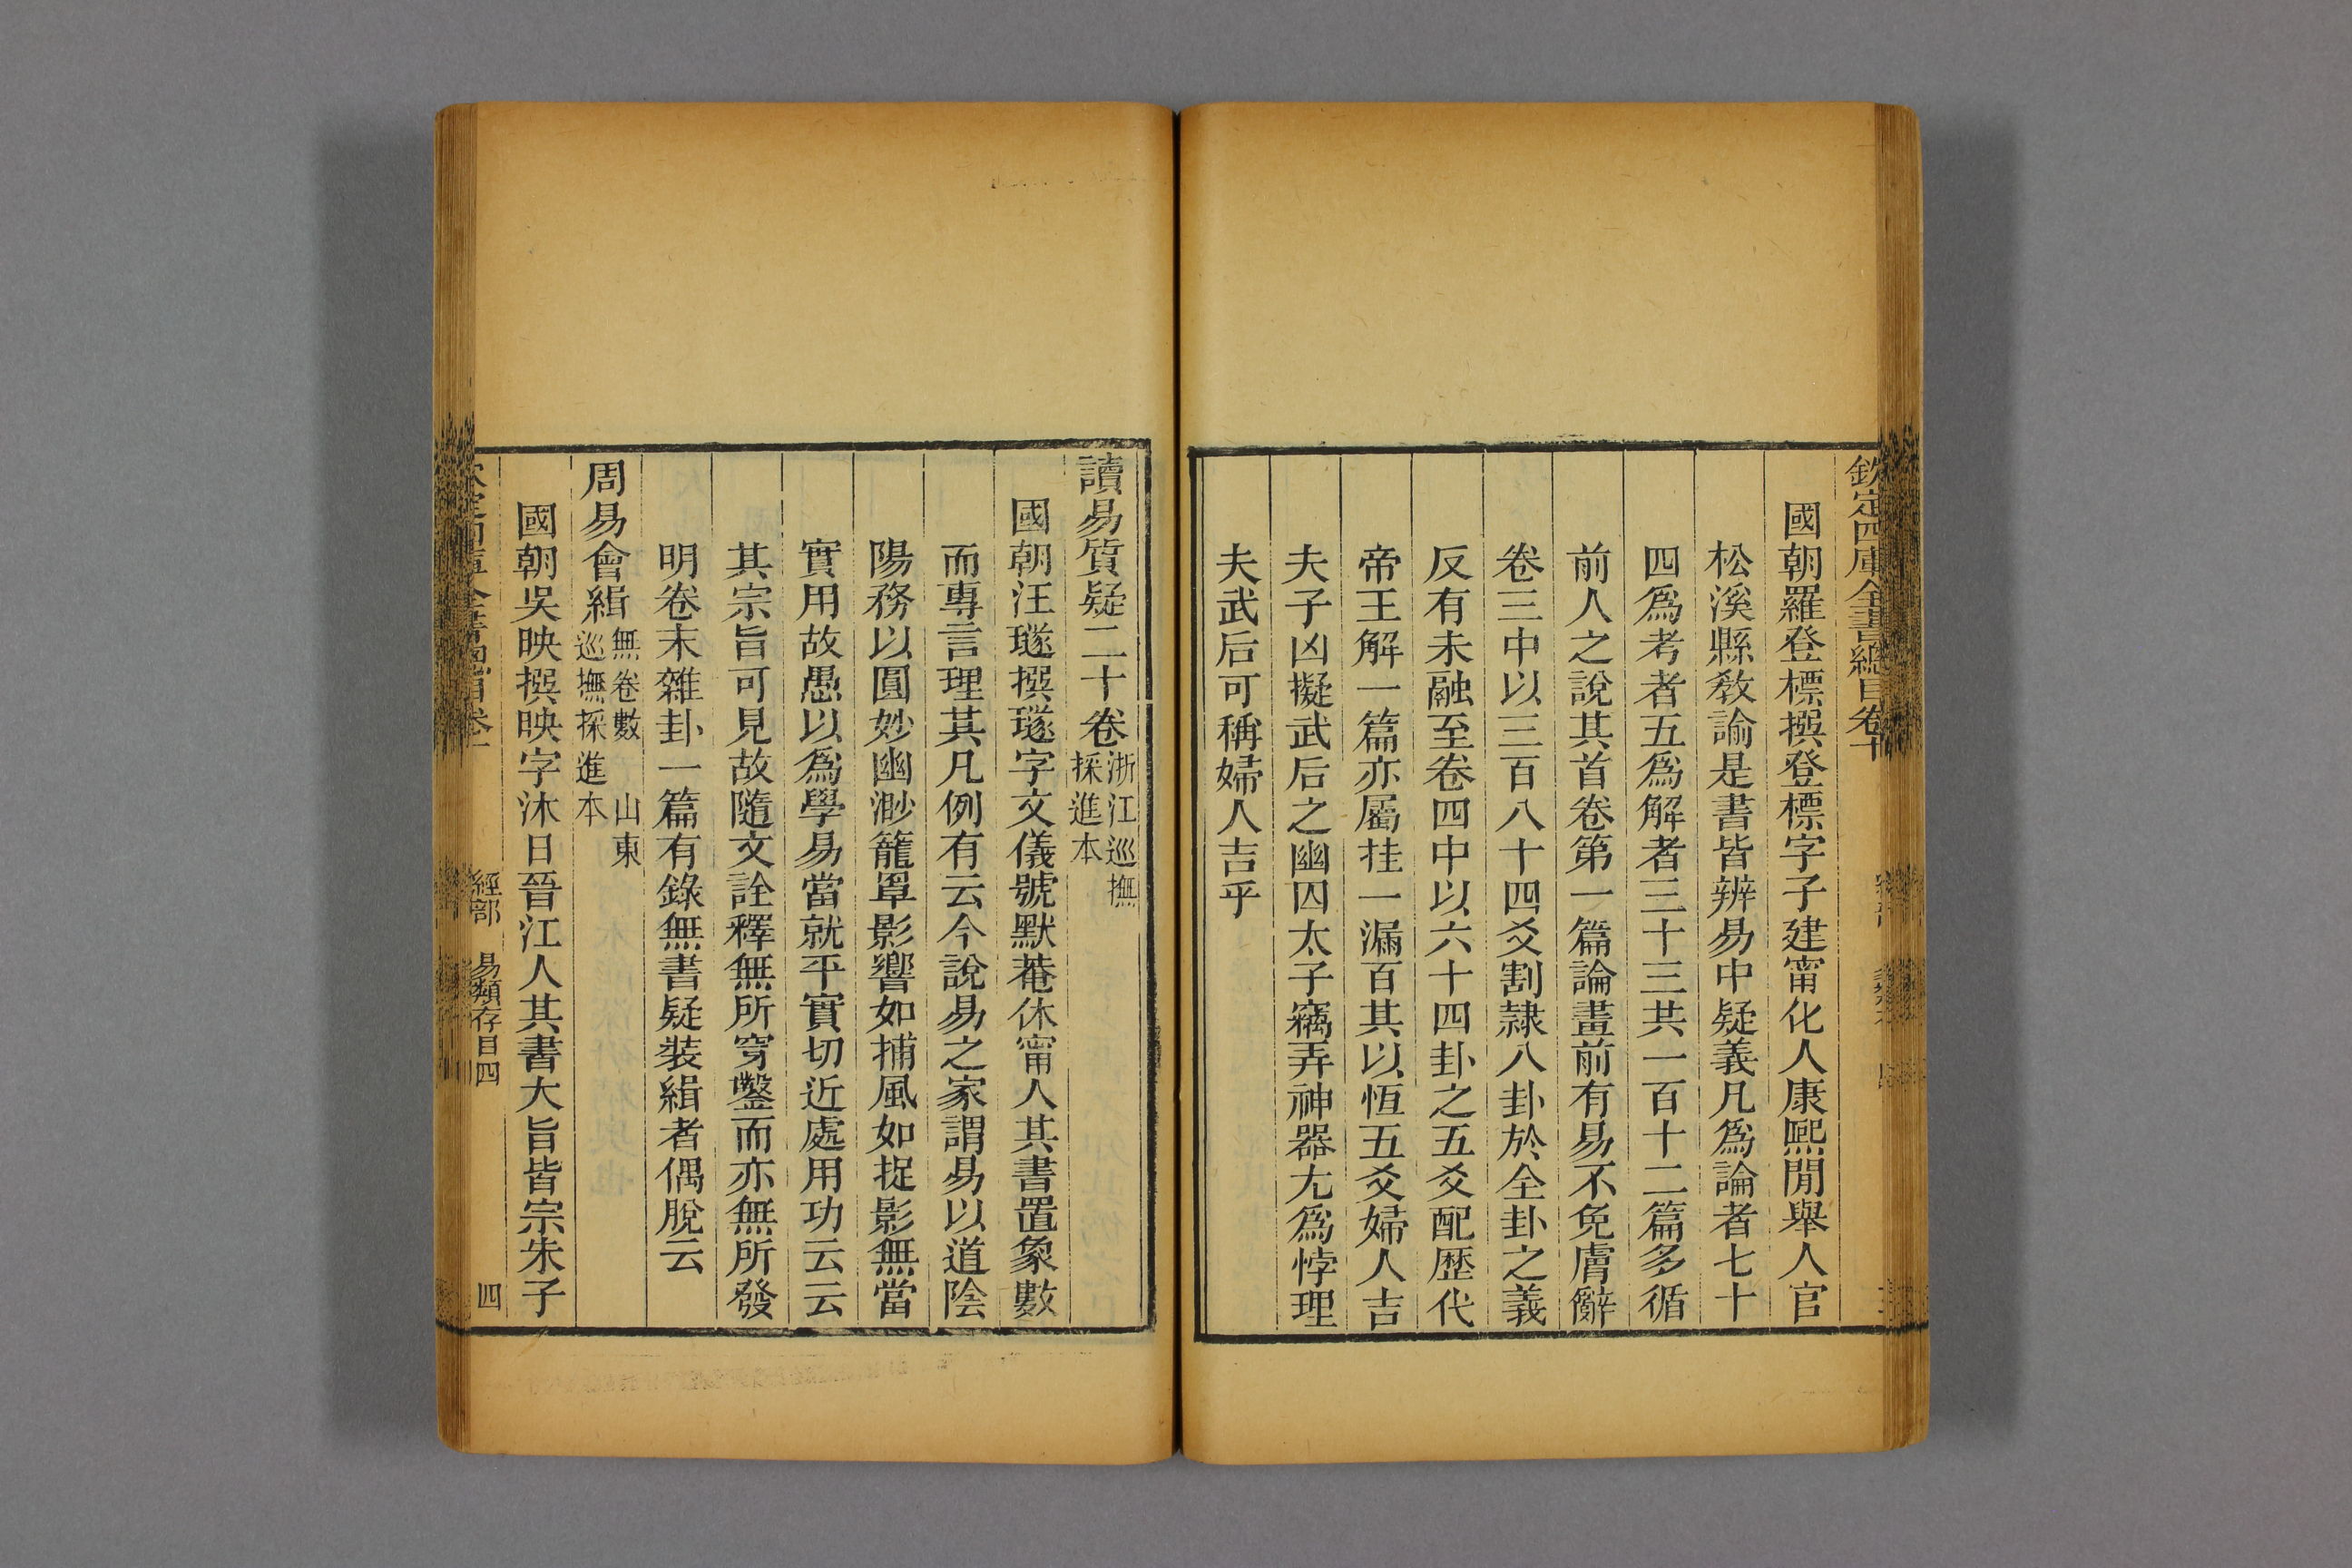 欽定四庫全書總目卷十
國朝羅登標撰登標字子建甯化人康熙閒舉人官
松溪縣敎諭是書皆辨易中疑義凡爲論者七十
四爲考者五爲解者三十三共一百十二篇多循
前人之說其首卷第一篇論畫前有易不免膚辭
卷三中以三百八十四爻割隷八卦於全卦之義
反有未融至卷四中以六十四卦之五爻配歷代
帝王解一篇亦屬挂一漏百其以恆五爻婦人吉
夫子凶擬武后之幽囚太子竊弄神器尢爲悖理
夫武后可稱婦人吉乎
讀易質疑二十卷浙江巡撫
採進本
國朝汪璲撰璲字文儀號默菴休甯人其書置象數
而專言理其凡例有云今說易之家謂易以道陰
陽務以圓妙幽渺籠罩影響如捕風如捉影無當
實用故愚以爲學易當就平實切近處用功云云
其宗旨可見故隨文詮釋無所穿鑿而亦無所發
明卷末雜卦一篇有錄無書疑裝緝者偶脫云
周易會緝無卷數 山東
巡撫採進本
國朝吳映撰映字沐日晉江人其書大旨皆宗朱子
經部 易類存目四 四